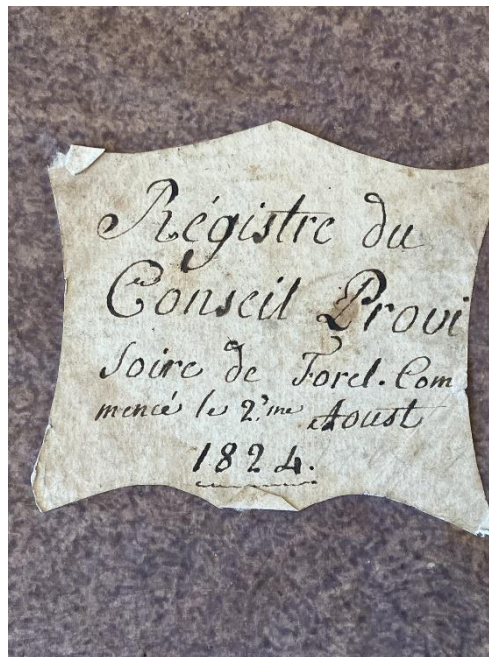 Régistre du
Conseil Provi
soire de Forel. Com
mencé le 2.me Aoust
1824.